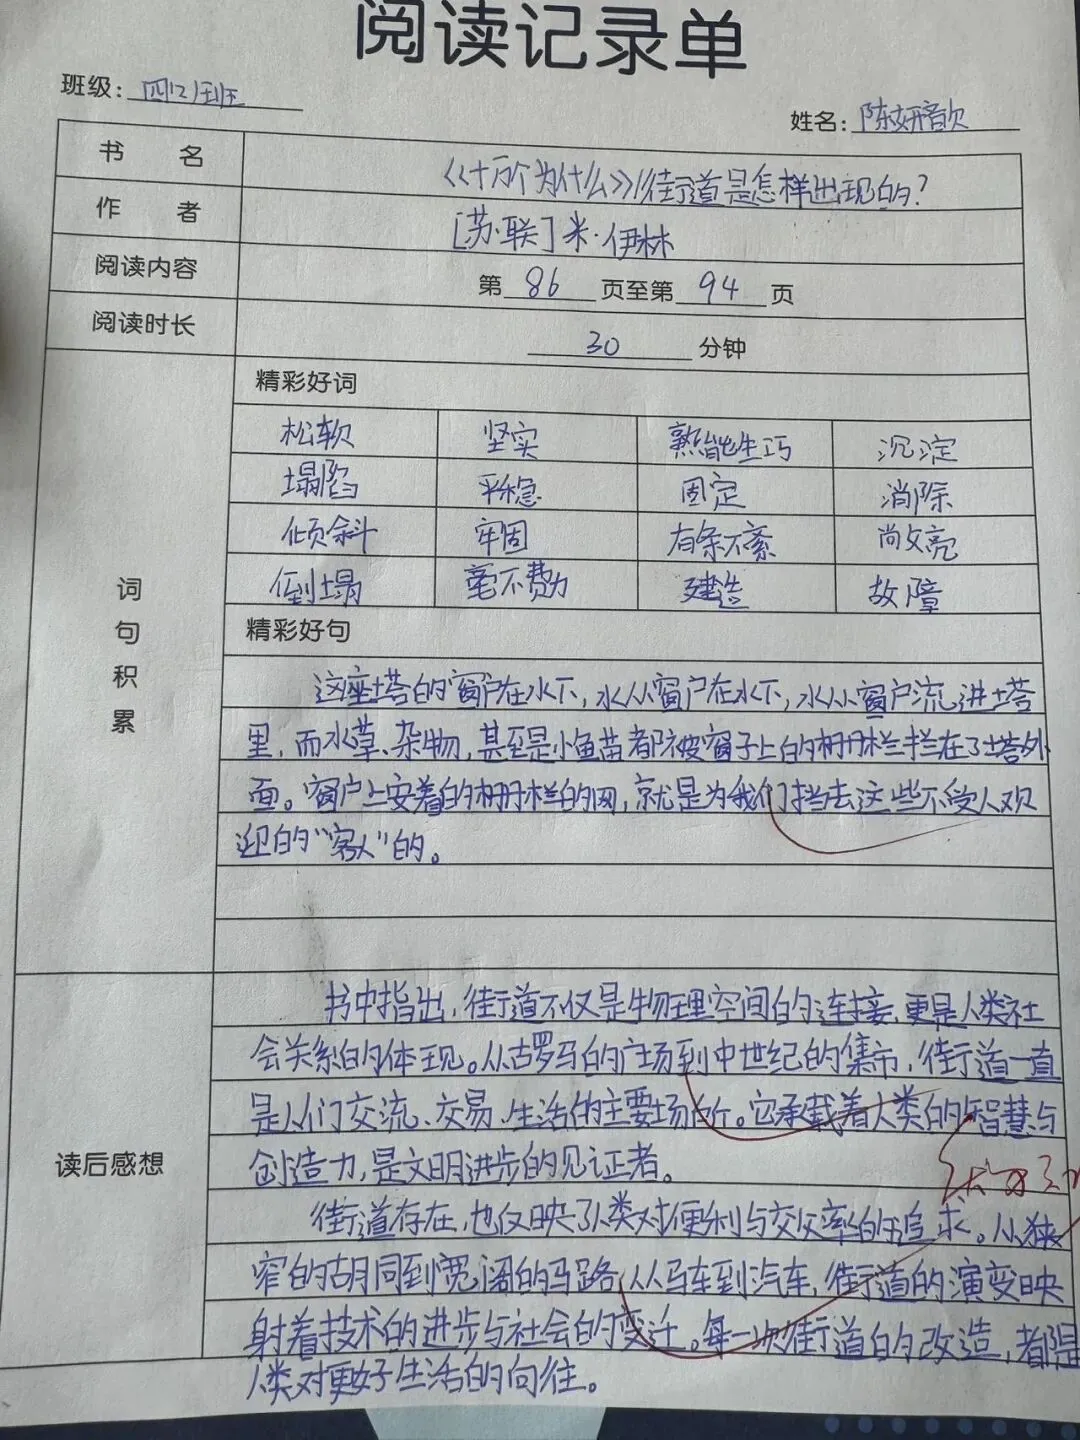 阅读记录单
班级: 四(2)班
姓名: 陈妍歆
书 名 《十万个为什么》街道是怎样出现的?
作 者 [苏·联]米·伊林
阅读内容 第 86 页至第 94 页
阅读时长 30 分钟
词句积累
精彩好词
松软 坚实 熟能生巧 沉淀
塌陷 平稳 固定 消除
倾斜 牢固 有条不紊 敞亮
倒塌 毫不费力 建造 故障
精彩好句
这座塔的窗户在水下,水从窗户在水下,水从窗户流进塔
里,而水草、杂物,甚至是小鱼苗都被窗子上的栅栏拦在了塔外
面。窗户上安着的栅栏的网,就是为我们挡去这些不受人欢
迎的“客人”的。
读后感想
书中指出,街道不仅是物理空间的连接,更是人类社
会关系的体现。从古罗马的广场到中世纪的集市,街道一直
是人们交流、交易、生活的主要场所。它承载着人类的智慧与
创造力,是文明进步的见证者。
街道存在,也仅映了人类对便利与交效率的追求。从狭
窄的胡同到宽阔的马路,从马车到汽车,街道的演变映
射着技术的进步与社会的变迁。每一次街道的改造,都是
人类对更好生活的向往。